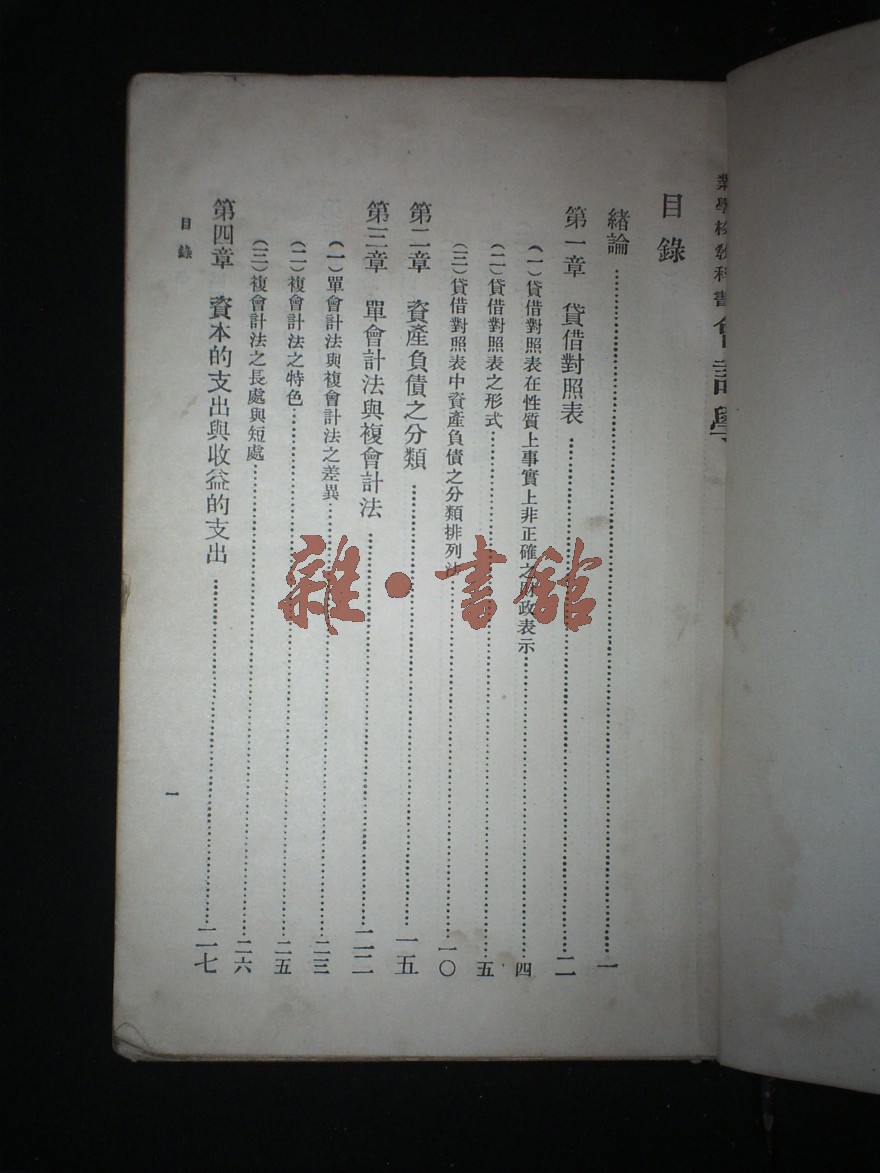 業學校教科書會計學
目錄
緒論……一
第一章　貸借對照表……二
（一）貸借對照表在性質上事實上非正確之財政表示……四
（二）貸借對照表之形式……五
（三）貸借對照表中資產負債之分類排列法……一〇
第二章　資產負債之分類……一五
第三章　單會計法與複會計法……二二
（一）單會計法與複會計法之差異……二三
（二）複會計法之特色……二五
（三）複會計法之長處與短處……二六
第四章　資本的支出與收益的支出……二七
目錄
一
雜·書館